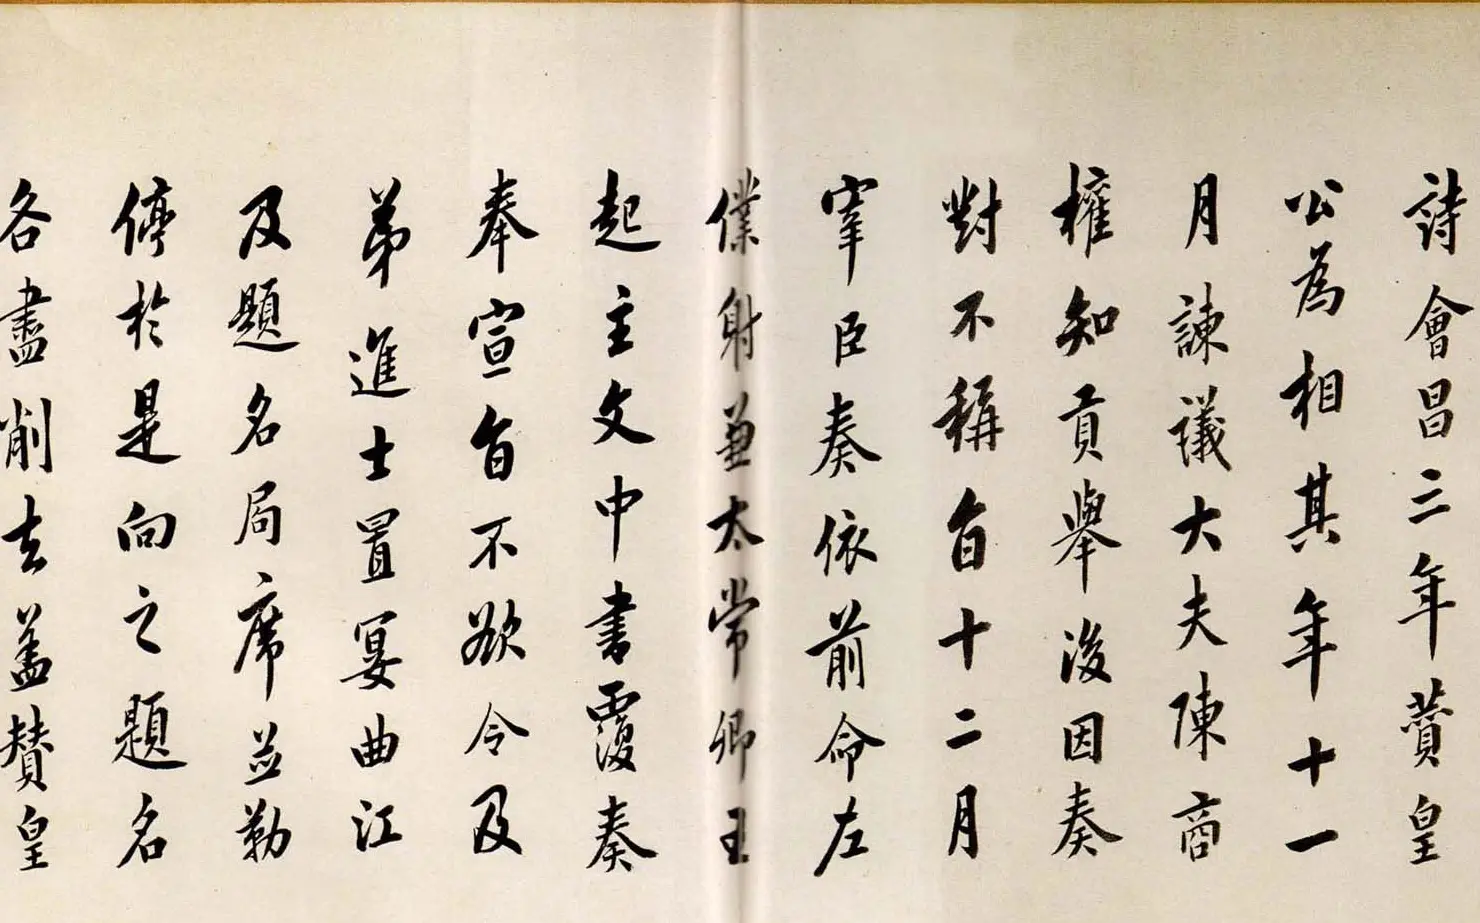 詩會昌三年贊皇
公為相其年十一
月諫議大夫陳商
權知貢舉後因奏
對不稱旨十二月
宰臣奏依前命左
僕射兼太常卿王
起主文中書覆奏
奉宣旨不欲令及
弟進士置宴曲江
及題名局席並勒
停於是向之題名
各盡削去盖贊皇